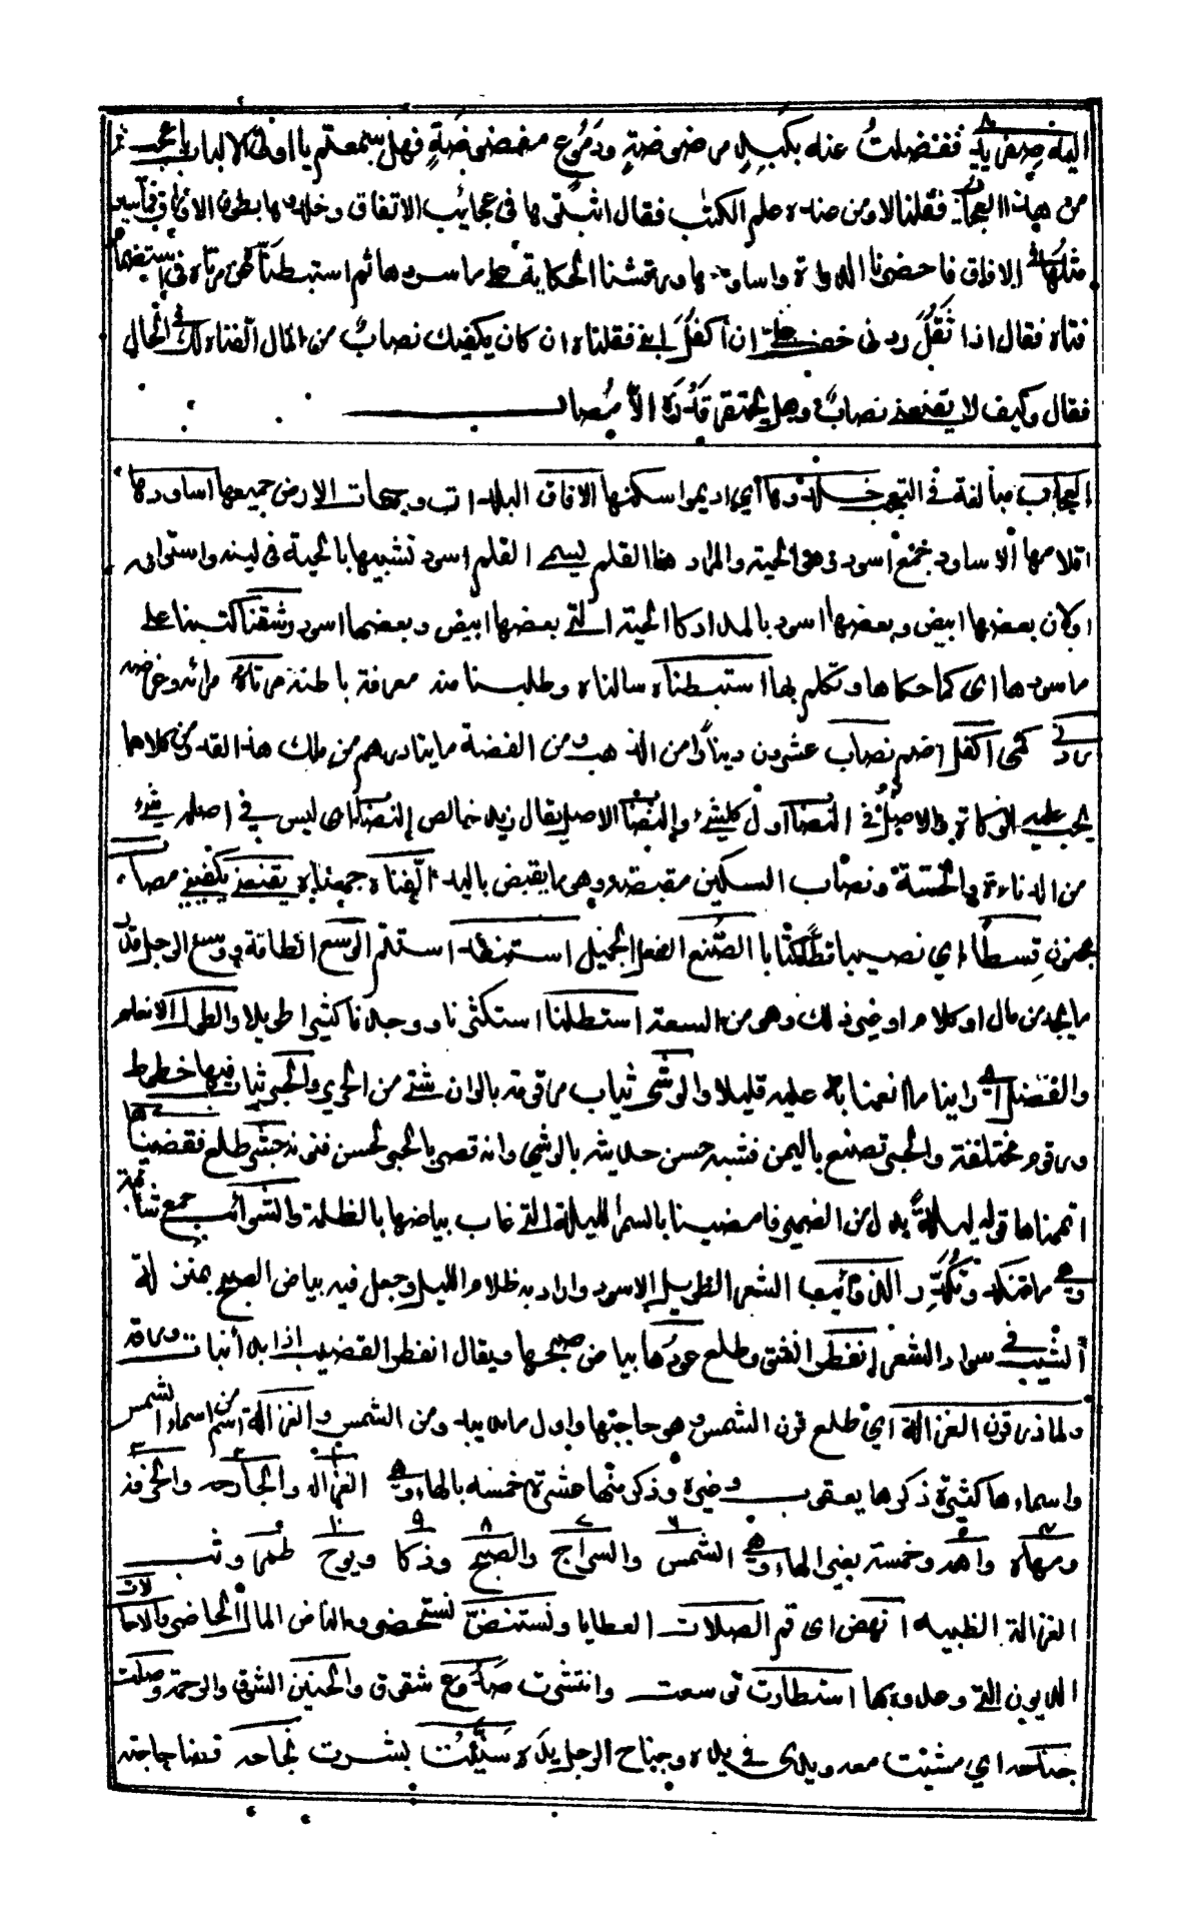 اليه صفر يد ففصلت عنه بكبد مرضوضة ودموع مفضوضة فهل سمعتم يا اولي الالباب باعجب
من هذا العجاب فقلنا لا ومن عنده علم الكتب فقال اثبتوها في عجائب الاتفاق وخلدوها بطون الاوراق فما سير
مثلها في الافاق فاحضرنا الدواة واساودها ورقشنا الحكاية على ما سردها ثم استبطناه عن مرتاه في استضمام
فتاه فقال اذا ثقل ردني خف علي ان اكفل ابني فقلنا له ان كان يكفيك نصاب من المال الفناه لك في الحال
فقال وكيف لا يقنعني نصاب وهل يحتقر قدره الا مصاب
العجاب مبالغة في التعجب خلدوها أي اديموا سكنها الافاق البلدان وجهات الارض جميعها اساودها
اقلامها الاساود جمع أسود وهو الحية والمراد هنا القلم يسمى القلم اسود تشبيها بالحية في لينه واستوائه
او لان بعضها ابيض وبعضها اسود بالمداد كالحية التي بعضها ابيض وبعضها اسود ورقشنا كتبنا على
ما سردها اي كما حكاها وتكلم بها استبطناه سالناه وطلبنا منه معرفة باطنه مرتاه مرائه وغرضه
ردني كمى اكفل اضم نصاب عشرون دينارا من الذهب ومن الفضة مايتا درهم من ملك هذا القدر من كلاهما
يجب عليه الزكاة والاصل في النصاب اول كل شيء والنصاب الاصل يقال زيد خالص النصاب اي ليس في اصله شيء
من الدناءة والخسة ونصاب السكين مقبضه وهو ما يقبض باليد الفناه جمعناه يقنعني يكفيني مصاب
مجنون قسطا أي نصيبا قطا كتابا الصنع الفعل الجميل استنفد استتم الوسع الطاقة ووسع الرجل قدر
ما يجد من مال او كلام او غير ذلك وهو من السعة استطلنا استكثرنا ووجدناه كثيرا طويلا والطول الانعام
والفضل اي راينا ما انعمنا به عليه قليلا والوشي ثياب مرقومة بالوان شتى من الحرير والحبر ثياب فيها خطوط
ورقوم مختلفة والحبر تصنع باليمن فشبه حسن حديثه بالوشي وانه قصر بالحبر لحسن فنونه جشر طلع فقضيناها
اتممناها قوله ليلة بدل من الضمير في امضينا بالسمر الليلة التي غاب بياضها بالظلمة والشوائب جمع شائبة
وهي ما تنكد وتكدر والذوائب الشعر الطويل الاسود واراد به ظلام الليل وجعل فيه بياض الصبح بمنزلة
الشيب في سواد الشعر انفطر انفتق وطلع عودها بياض صبحها ويقال انفطر القضيب اذا بدا نبات ورقه
ولما ذر قرن الغزالة أي طلع قرن الشمس وهو حاجبها واول ما يبدو من الشمس والغزالة اسم من اسماء الشمس
واسماءها كثيرة ذكرها يعقوب وغيره وذكر منها عشرة خمسة بالهاء وهي الغزاله والجارحه والجونه
ومهاه والاهه وخمسة بغير الهاء وهي الشمس والسراج والصبح وذكا ويوح طمر وثب
الغزالة الظبيه انهض اي قم الصلات العطايا ونستنض نستحضر والناض المال الحاضر والاحالات
الديون التي وعدوه بها استطارت توسعت وانتشرت صدوع شقوق والحنين الشوق والرحمة وصلت
جناحه اي مشيت معه ويدي في يده وجناح الرجل يده سنيت يسرت نجاحه قضا حاجته